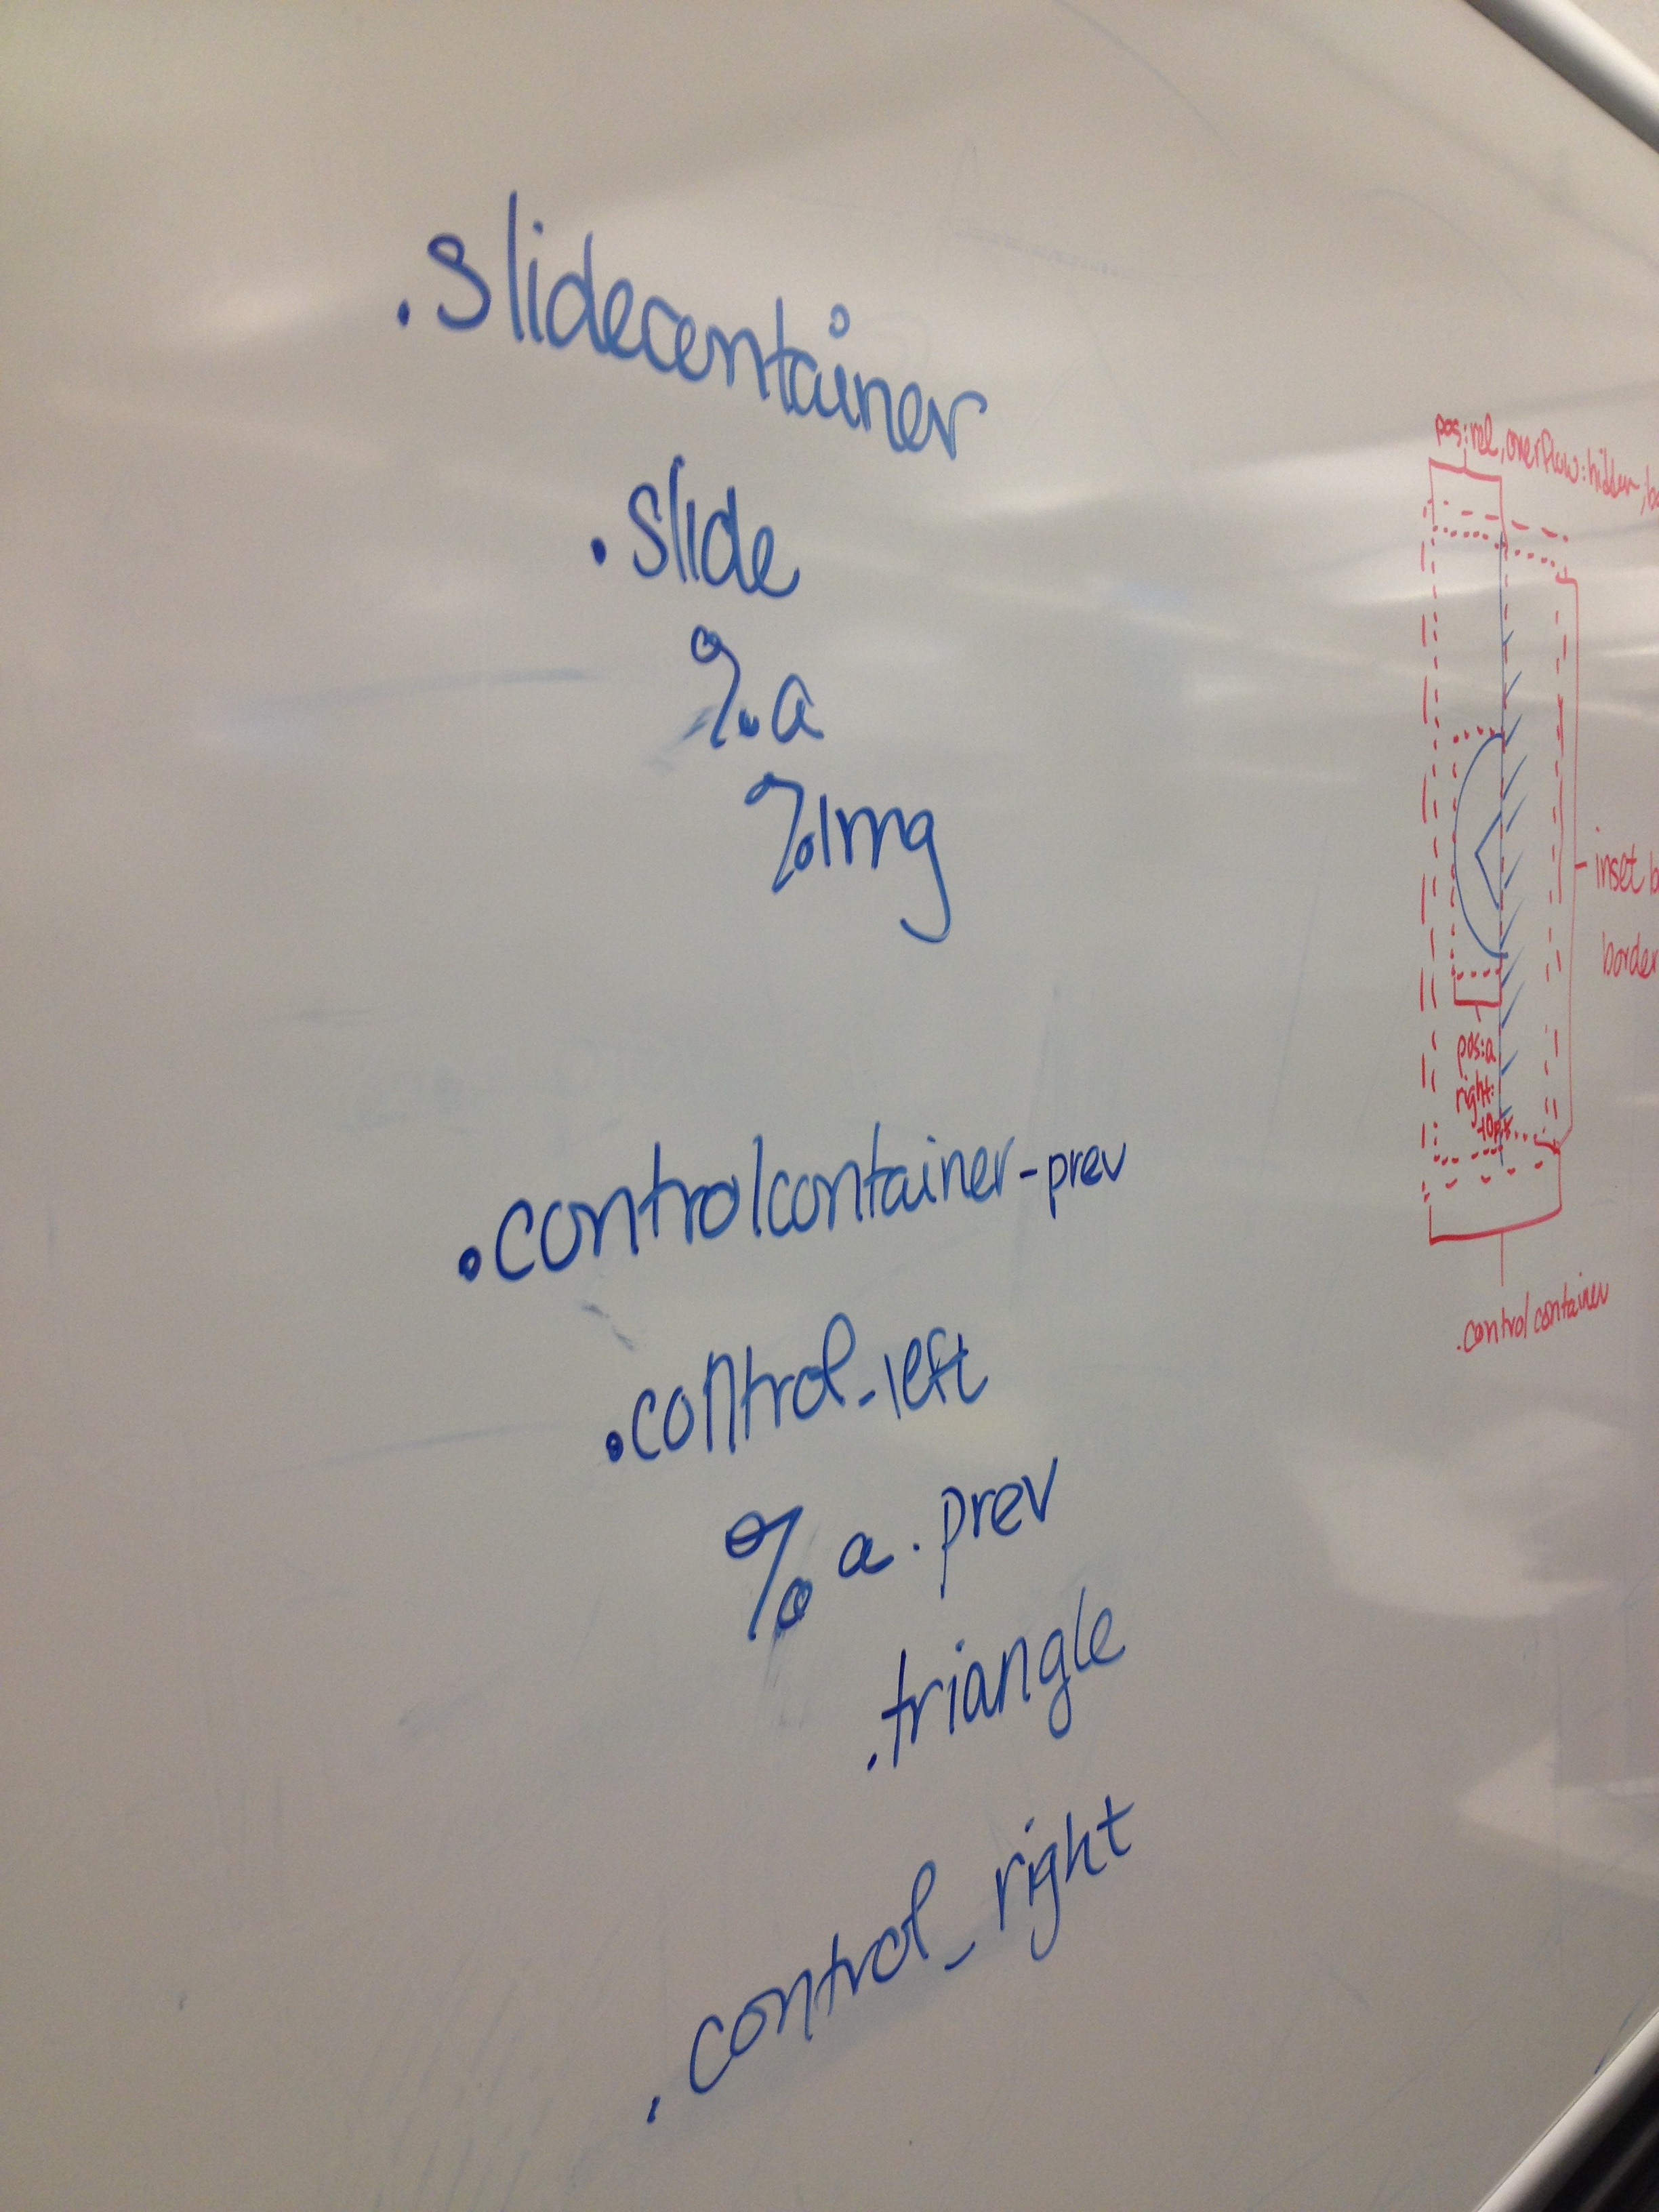 .slidecontainer
.slide
%a
%img
.controlcontainer-prev
.control_left
%a.prev
.triangle
.control_right
pos:rel, overflow:hidden;
inset
border
pos:a
right:
-10px
.controlcontainer